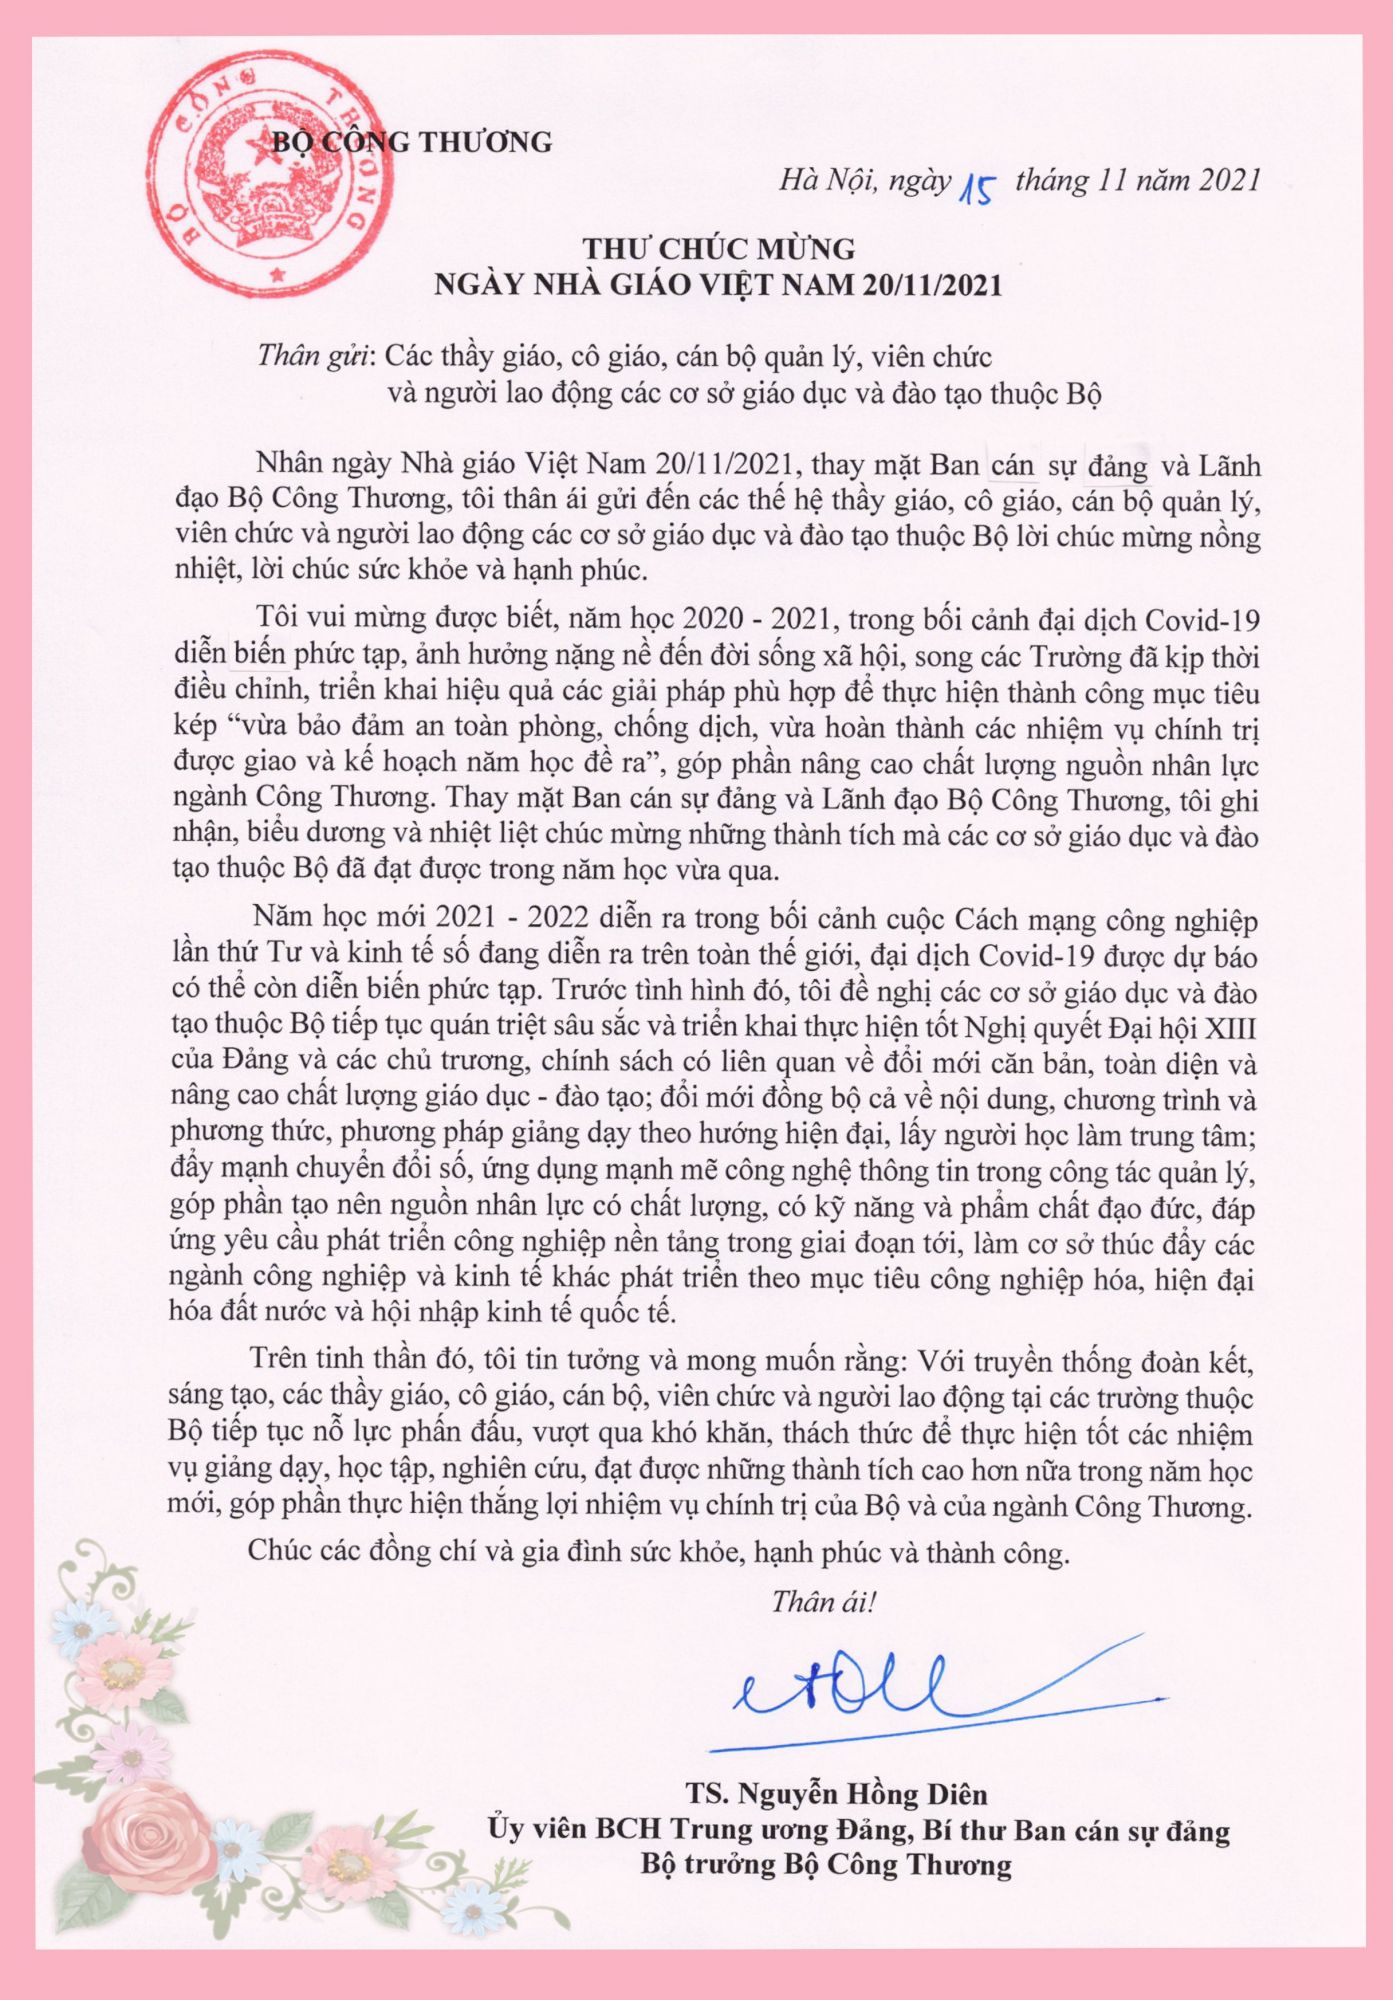 BỘ CÔNG THƯƠNG
BỘ CÔNG THƯƠNG
Hà Nội, ngày 15 tháng 11 năm 2021
THƯ CHÚC MỪNG
NGÀY NHÀ GIÁO VIỆT NAM 20/11/2021
Thân gửi: Các thầy giáo, cô giáo, cán bộ quản lý, viên chức
và người lao động các cơ sở giáo dục và đào tạo thuộc Bộ
Nhân ngày Nhà giáo Việt Nam 20/11/2021, thay mặt Ban cán sự đảng và Lãnh
đạo Bộ Công Thương, tôi thân ái gửi đến các thế hệ thầy giáo, cô giáo, cán bộ quản lý,
viên chức và người lao động các cơ sở giáo dục và đào tạo thuộc Bộ lời chúc mừng nồng
nhiệt, lời chúc sức khỏe và hạnh phúc.
Tôi vui mừng được biết, năm học 2020 - 2021, trong bối cảnh đại dịch Covid-19
diễn biến phức tạp, ảnh hưởng nặng nề đến đời sống xã hội, song các Trường đã kịp thời
điều chỉnh, triển khai hiệu quả các giải pháp phù hợp để thực hiện thành công mục tiêu
kép “vừa bảo đảm an toàn phòng, chống dịch, vừa hoàn thành các nhiệm vụ chính trị
được giao và kế hoạch năm học đề ra”, góp phần nâng cao chất lượng nguồn nhân lực
ngành Công Thương. Thay mặt Ban cán sự đảng và Lãnh đạo Bộ Công Thương, tôi ghi
nhận, biểu dương và nhiệt liệt chúc mừng những thành tích mà các cơ sở giáo dục và đào
tạo thuộc Bộ đã đạt được trong năm học vừa qua.
Năm học mới 2021 - 2022 diễn ra trong bối cảnh cuộc Cách mạng công nghiệp
lần thứ Tư và kinh tế số đang diễn ra trên toàn thế giới, đại dịch Covid-19 được dự báo
có thể còn diễn biến phức tạp. Trước tình hình đó, tôi đề nghị các cơ sở giáo dục và đào
tạo thuộc Bộ tiếp tục quán triệt sâu sắc và triển khai thực hiện tốt Nghị quyết Đại hội XIII
của Đảng và các chủ trương, chính sách có liên quan về đổi mới căn bản, toàn diện và
nâng cao chất lượng giáo dục - đào tạo; đổi mới đồng bộ cả về nội dung, chương trình và
phương thức, phương pháp giảng dạy theo hướng hiện đại, lấy người học làm trung tâm;
đẩy mạnh chuyển đổi số, ứng dụng mạnh mẽ công nghệ thông tin trong công tác quản lý,
góp phần tạo nên nguồn nhân lực có chất lượng, có kỹ năng và phẩm chất đạo đức, đáp
ứng yêu cầu phát triển công nghiệp nền tảng trong giai đoạn tới, làm cơ sở thúc đẩy các
ngành công nghiệp và kinh tế khác phát triển theo mục tiêu công nghiệp hóa, hiện đại
hóa đất nước và hội nhập kinh tế quốc tế.
Trên tinh thần đó, tôi tin tưởng và mong muốn rằng: Với truyền thống đoàn kết,
sáng tạo, các thầy giáo, cô giáo, cán bộ, viên chức và người lao động tại các trường thuộc
Bộ tiếp tục nỗ lực phấn đấu, vượt qua khó khăn, thách thức để thực hiện tốt các nhiệm
vụ giảng dạy, học tập, nghiên cứu, đạt được những thành tích cao hơn nữa trong năm học
mới, góp phần thực hiện thắng lợi nhiệm vụ chính trị của Bộ và của ngành Công Thương.
Chúc các đồng chí và gia đình sức khỏe, hạnh phúc và thành công.
Thân ái!
TS. Nguyễn Hồng Diên
Ủy viên BCH Trung ương Đảng, Bí thư Ban cán sự đảng
Bộ trưởng Bộ Công Thương